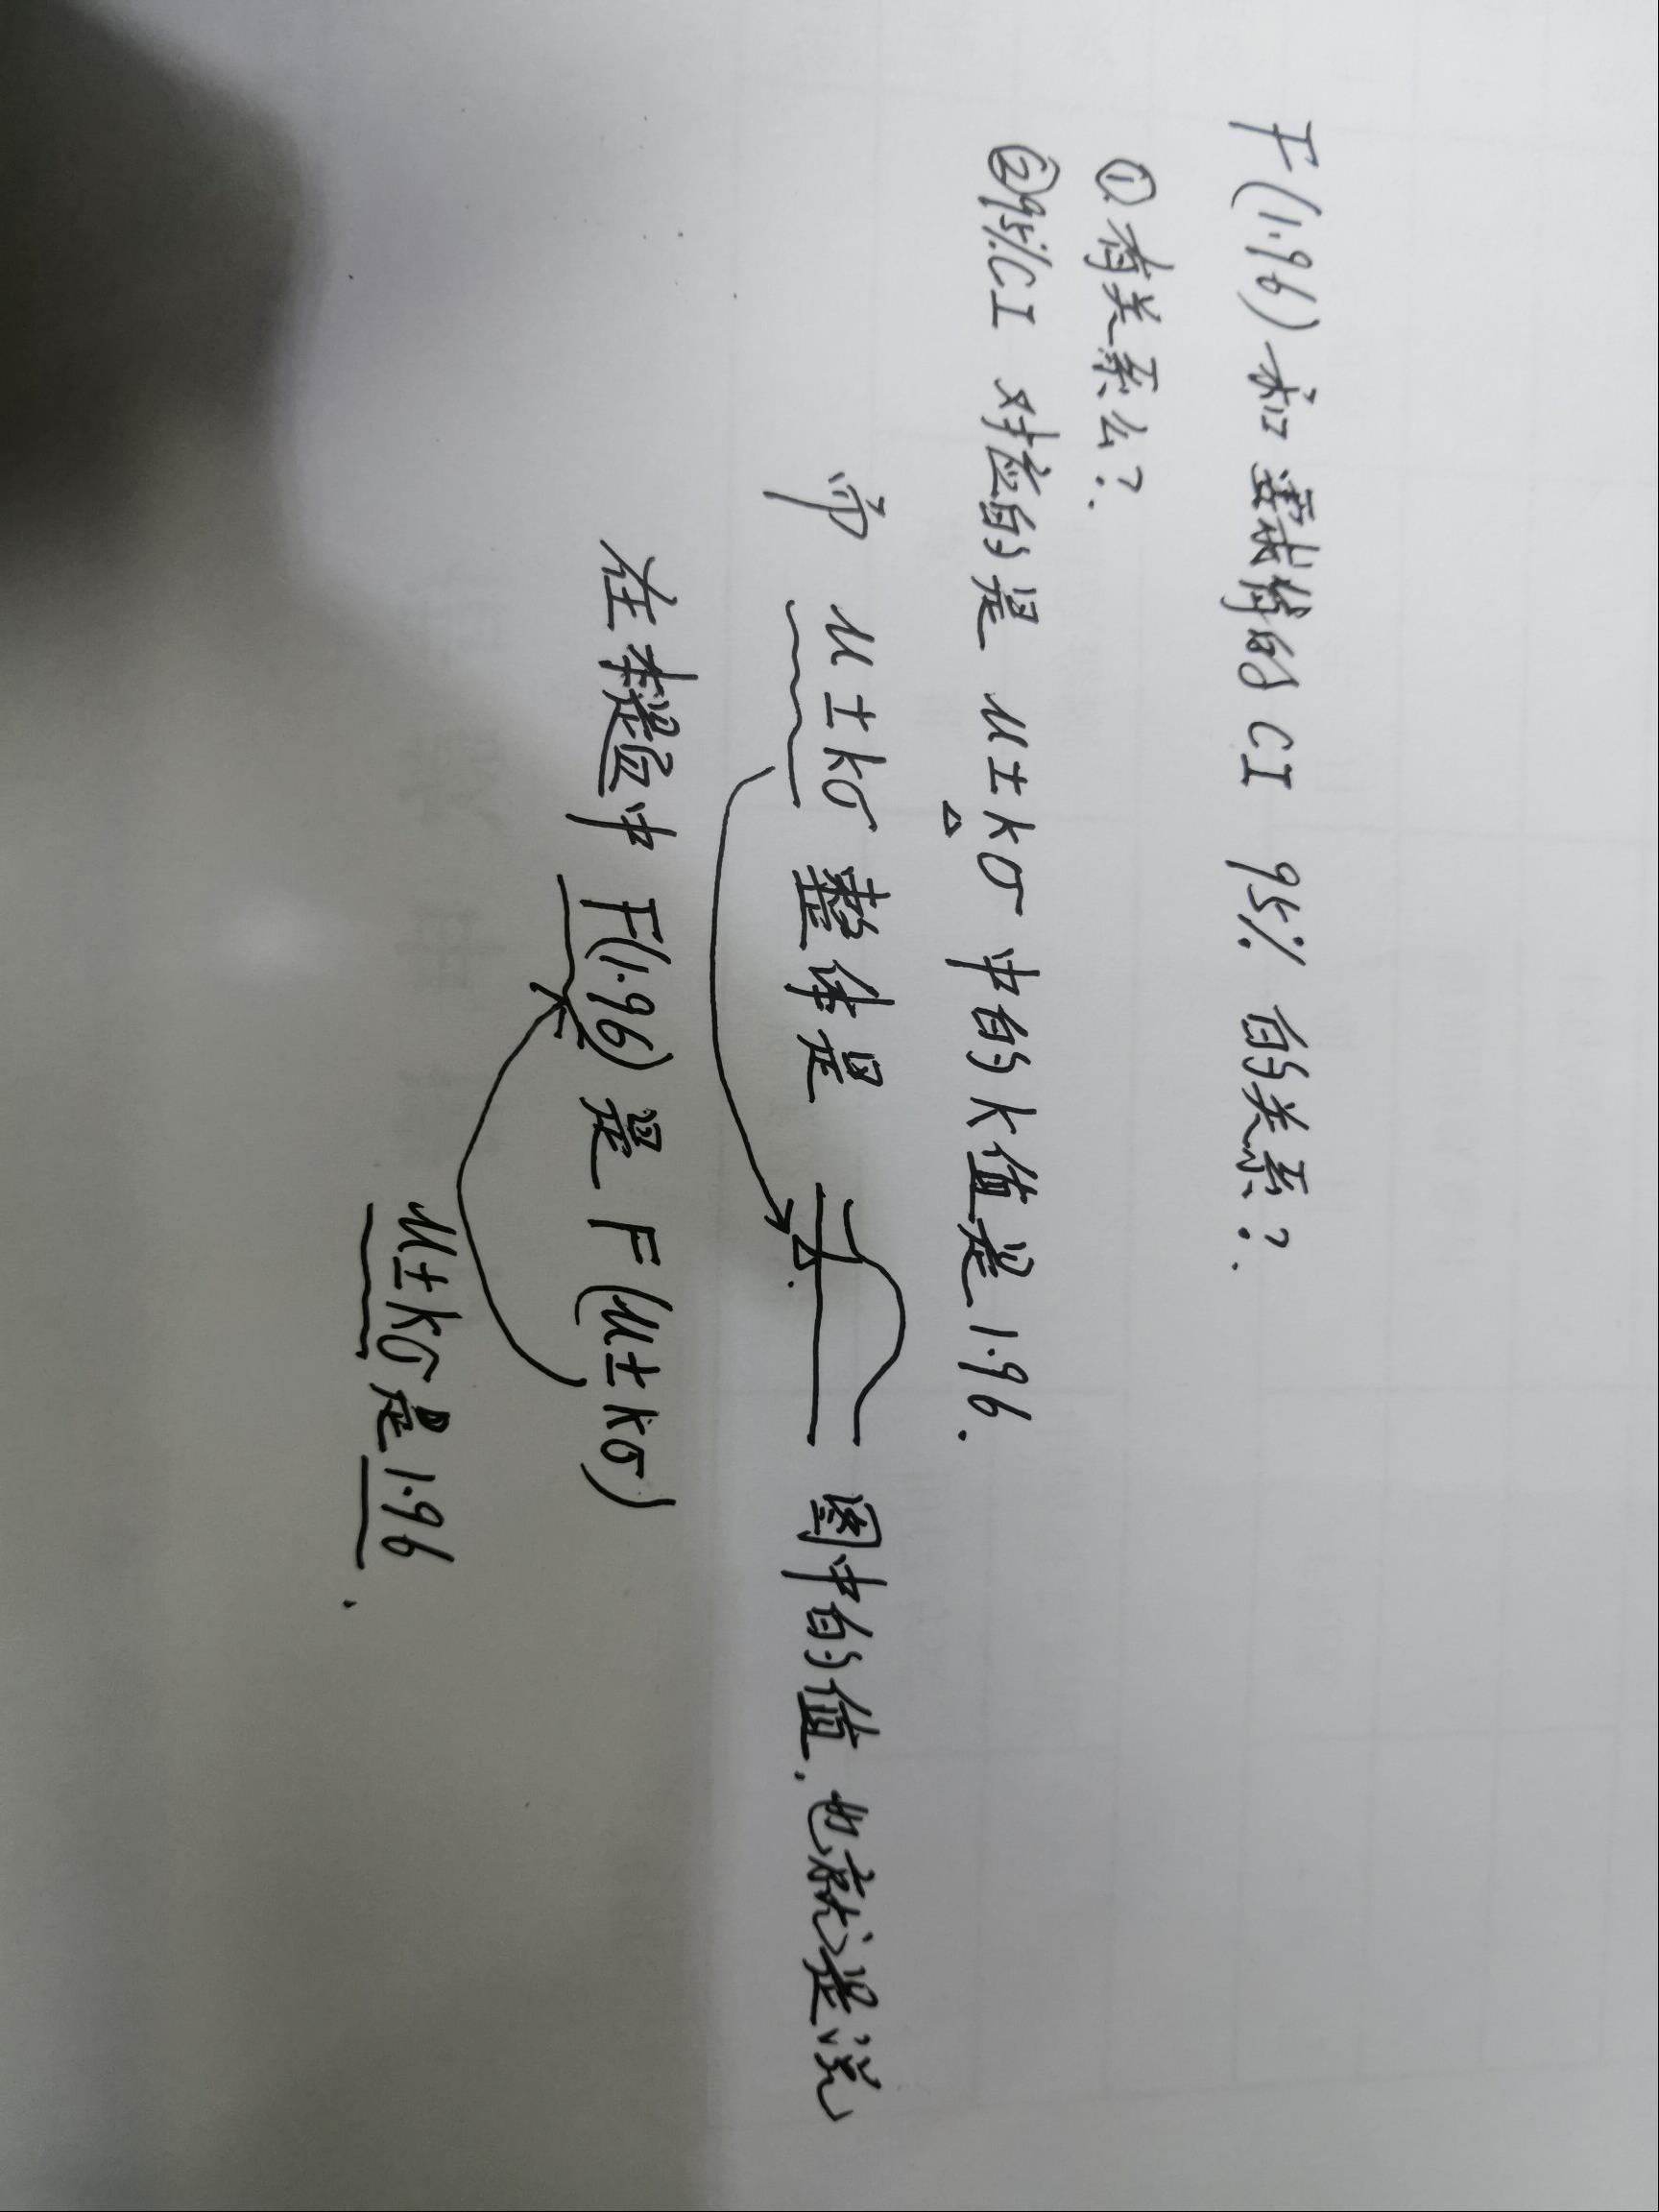 F(1.96) 和 要求解的 CI 95% 的关系?
① 有关系么?
② 95%CI 对应的是 μ±kσ 中的 k 值是 1.96.
而 μ±kσ 整体是 图中的值. 也就是说
在本题中 F(1.96) 是 F(μ±kσ)
μ±kσ 是 1.96.